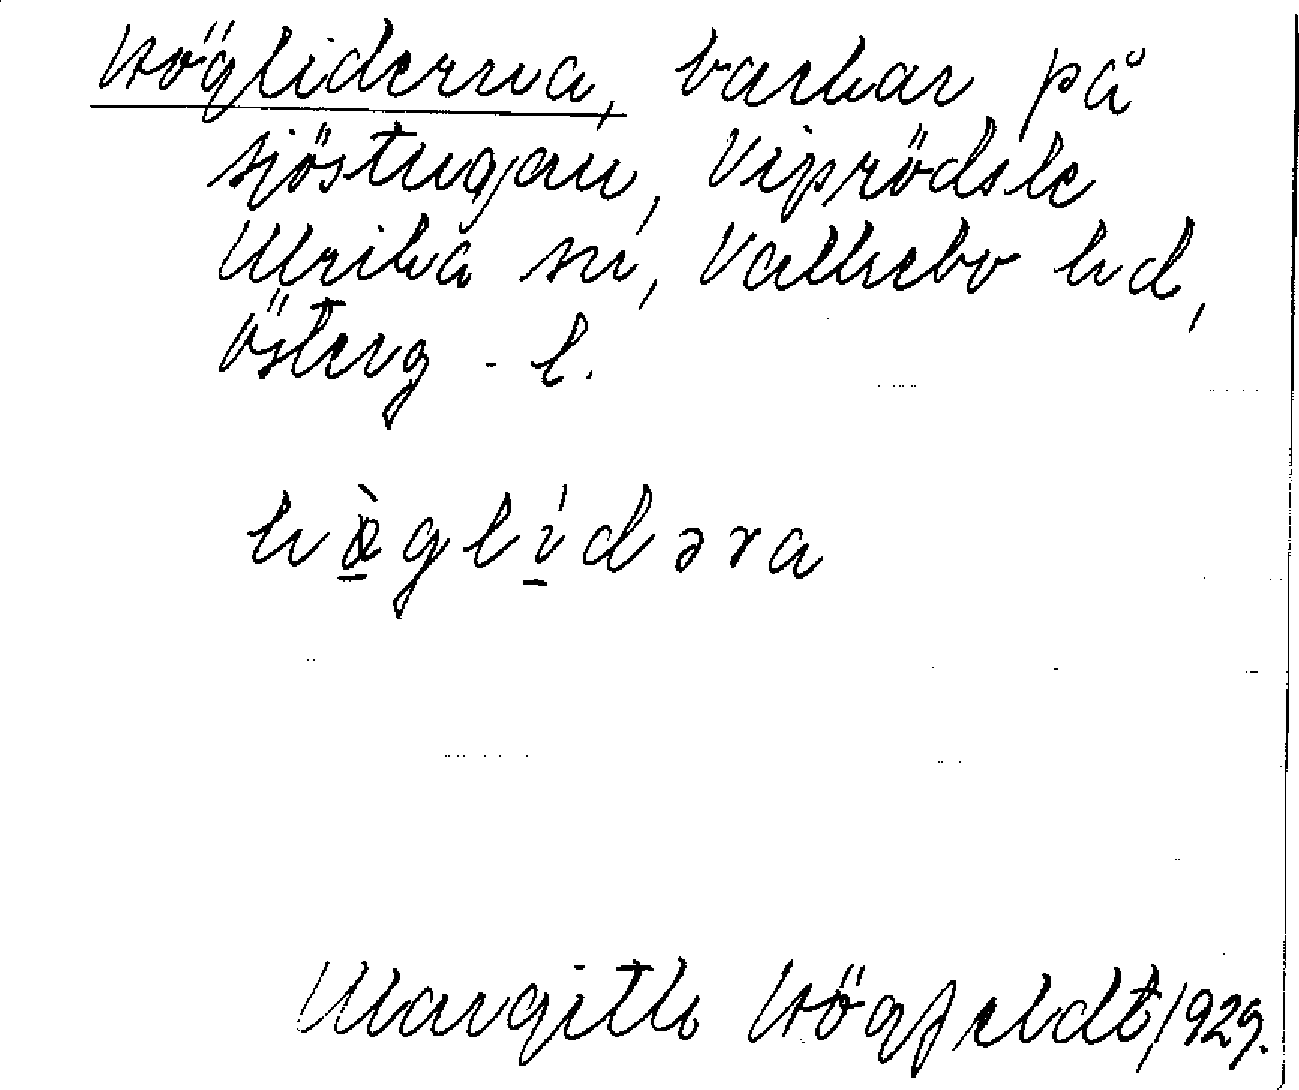 Högliderna, backar på
sjöstugan, Viprödsle
Ulrika sn, Valkebo hd,
Österg - l.
hö̀glídəra
Margith Högfeldt 1929.